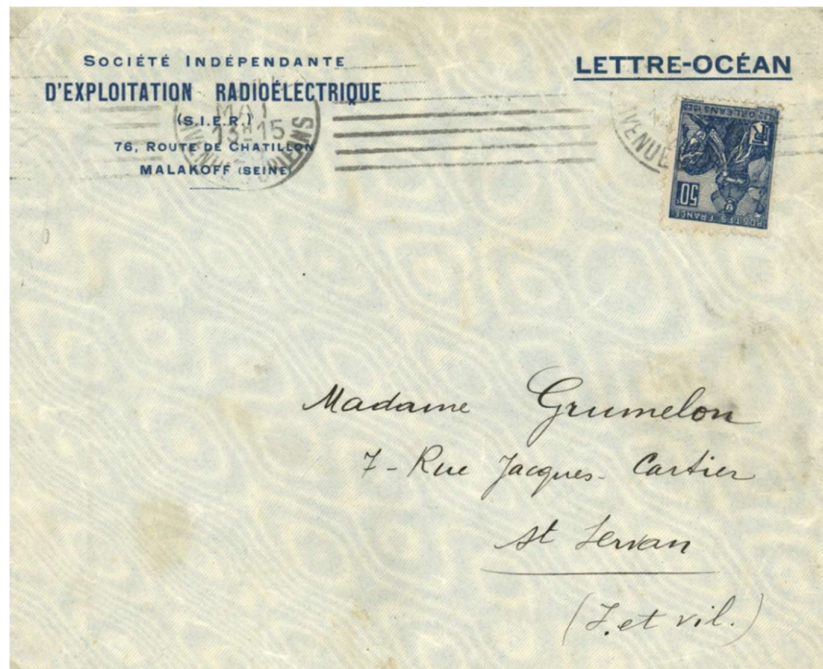 SOCIÉTÉ INDÉPENDANTE
D'EXPLOITATION RADIOÉLECTRIQUE
(S.I.E.R.)
76, ROUTE DE CHATILLON
MALAKOFF (SEINE)
LETTRE-OCÉAN
MAI
13H15
AVENUE ORLEANS
AVENUE
ORLEANS
50c
POSTES FRANCE
Madame Grumelon
7 - Rue Jacques-Cartier
St Servan
(I. et vil.)